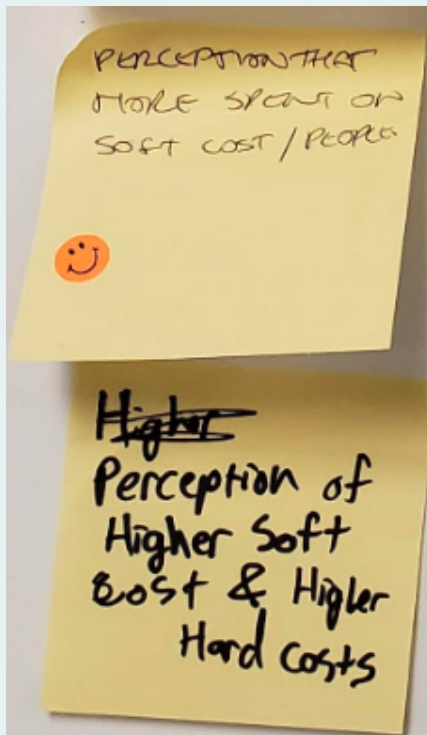 PERCEPTION THAT
MORE SPENT ON
SOFT COST / PEOPLE
Higher
Perception of
Higher Soft
Cost & Higher
Hard Costs